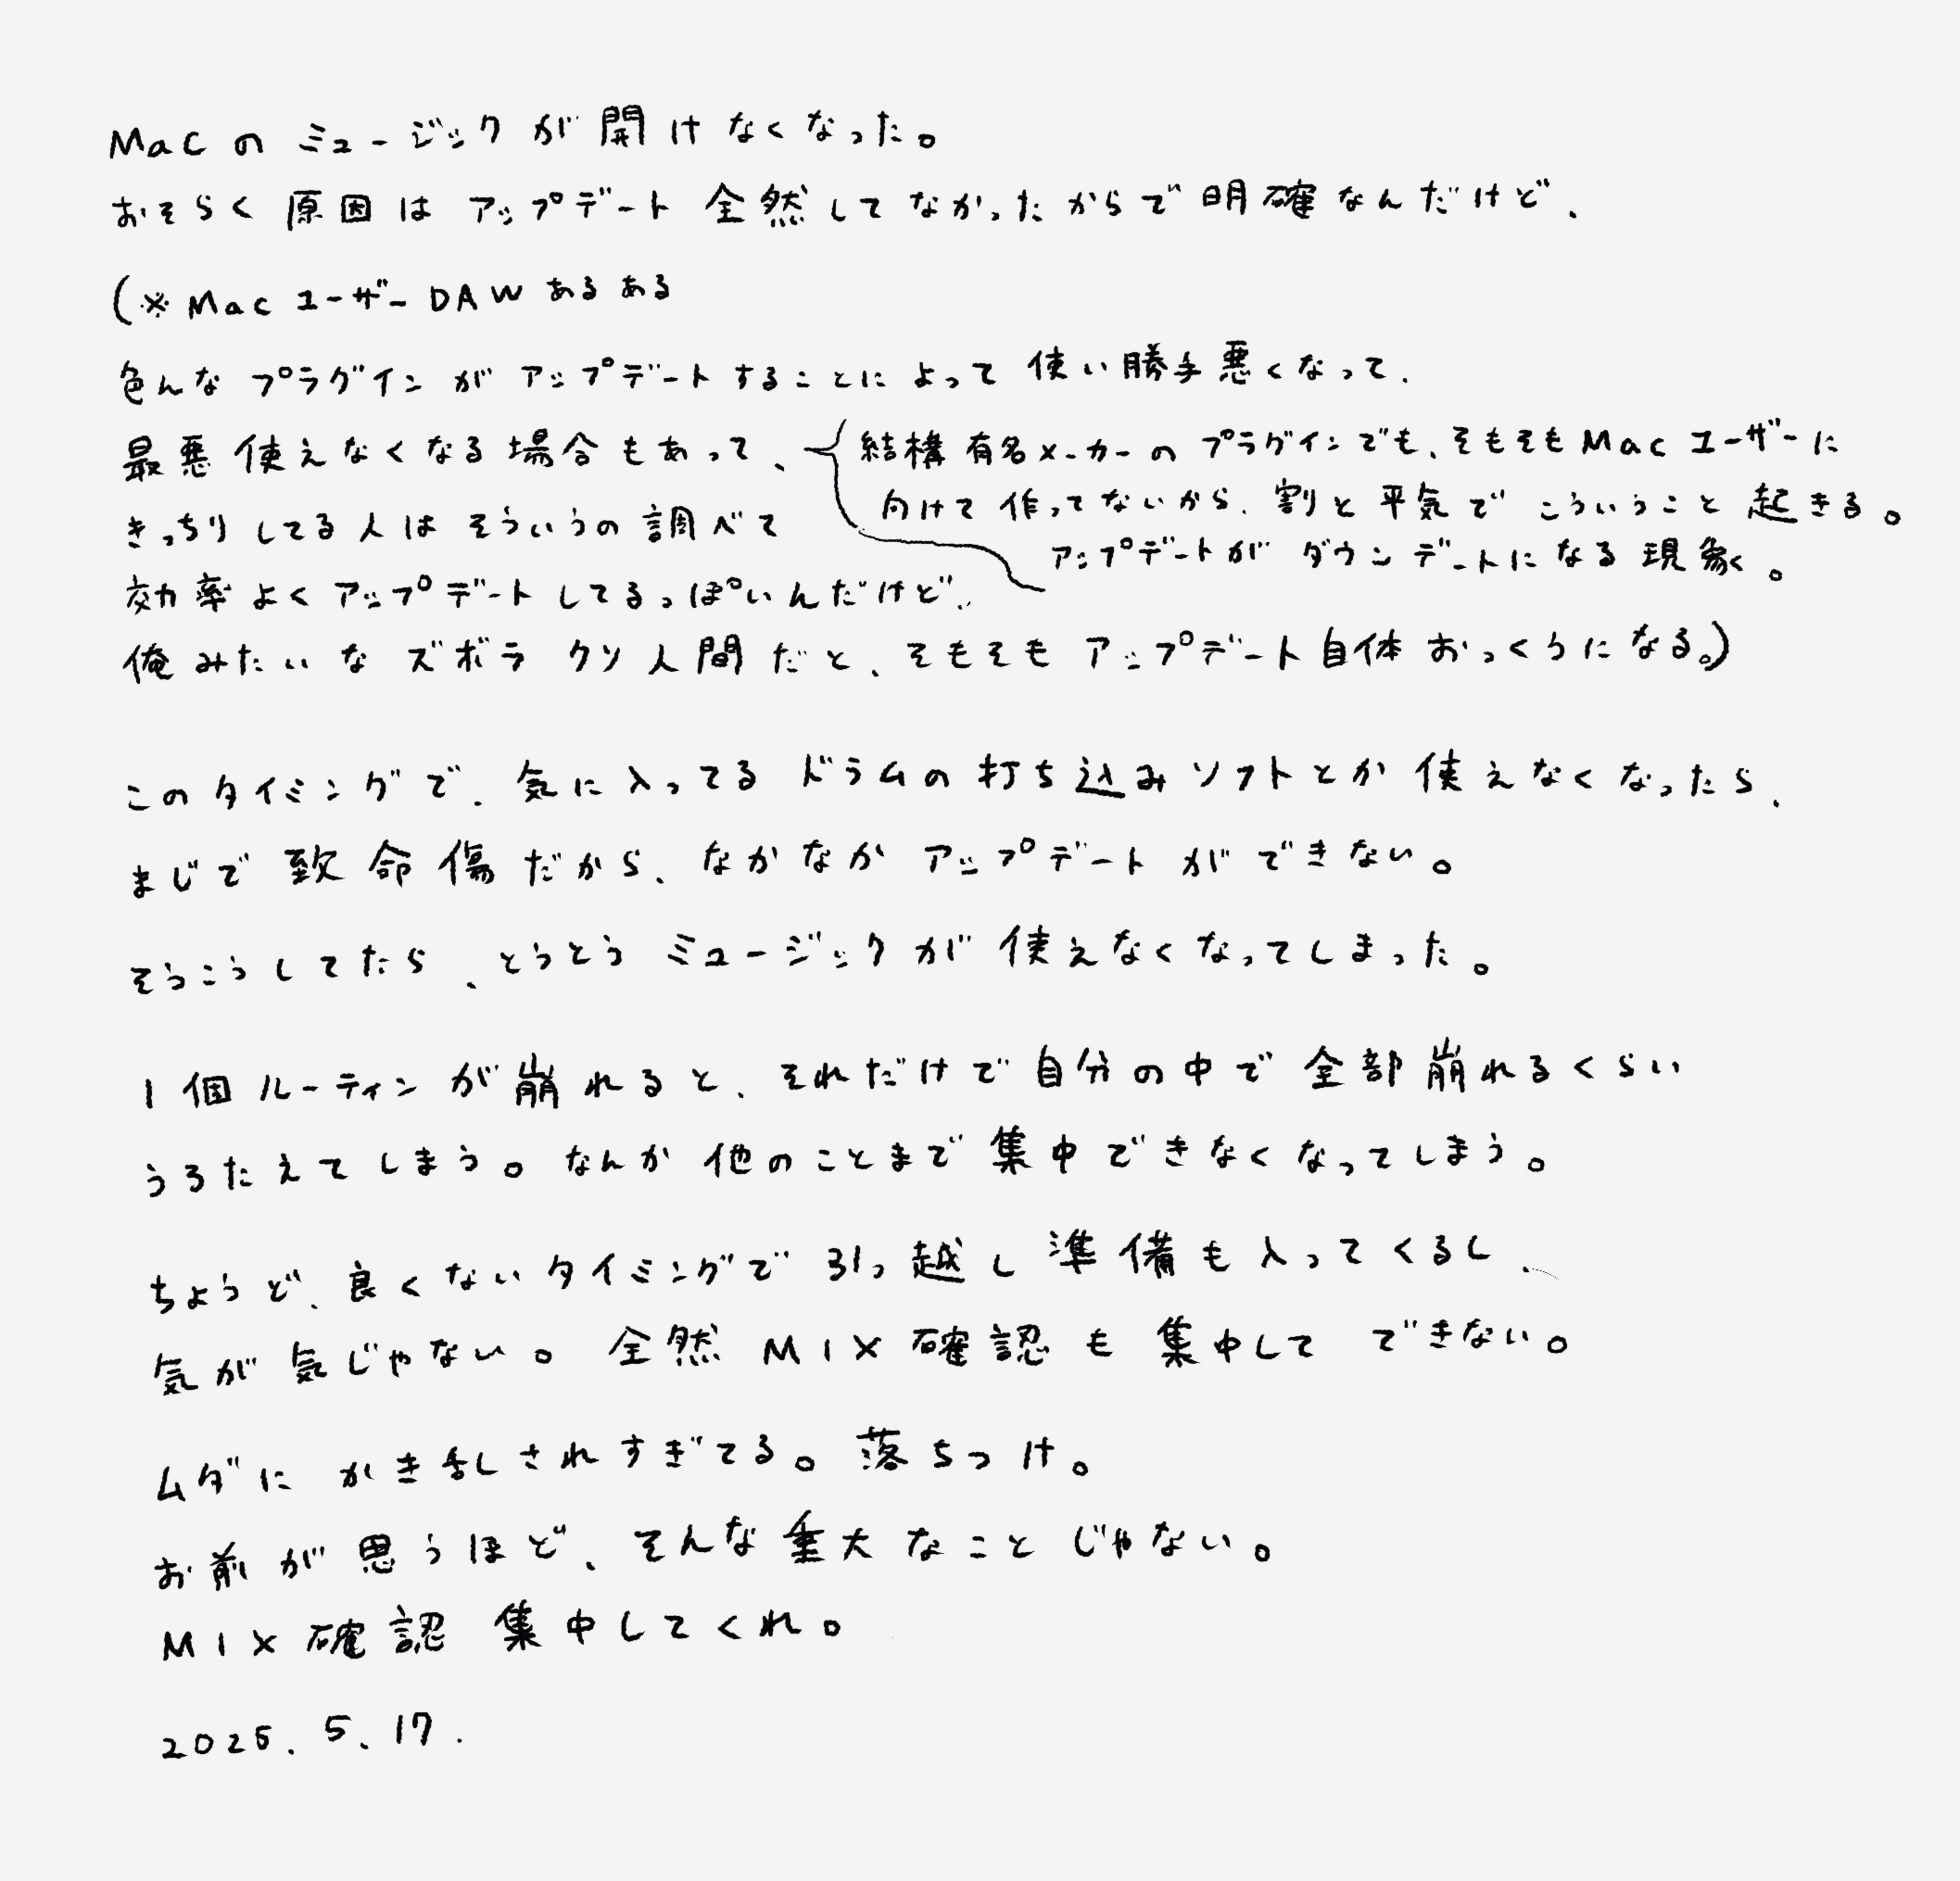 Macのミュージックが開けなくなった。
おそらく原因はアップデート全然してなかったからで明確なんだけど、
(※MacユーザーDAWあるある
色んなプラグインがアップデートすることによって使い勝手悪くなって、
最悪使えなくなる場合もあって、
結構有名メーカーのプラグインでも、そもそもMacユーザーに
向けて作ってないから、割と平気でこういうこと起きる。
アップデートがダウンデートになる現象。
きっちりしてる人はそういうの調べて
効率よくアップデートしてるっぽいんだけど、
俺みたいなズボラクソ人間だと、そもそもアップデート自体おっくうになる。)
このタイミングで、気に入ってるドラムの打ち込みソフトとか使えなくなったら、
まじで致命傷だから、なかなかアップデートができない。
そうこうしてたら、とうとうミュージックが使えなくなってしまった。
1個ルーティンが崩れると、それだけで自分の中で全部崩れるくらい
うろたえてしまう。なんか他のことまで集中できなくなってしまう。
ちょうど、良くないタイミングで引っ越し準備も入ってくるし、
気が気じゃない。全然MIX確認も集中してできない。
ムダにかき乱されすぎてる。落ちつけ。
お前が思うほど、そんな重大なことじゃない。
MIX確認集中してくれ。
2025.5.17.